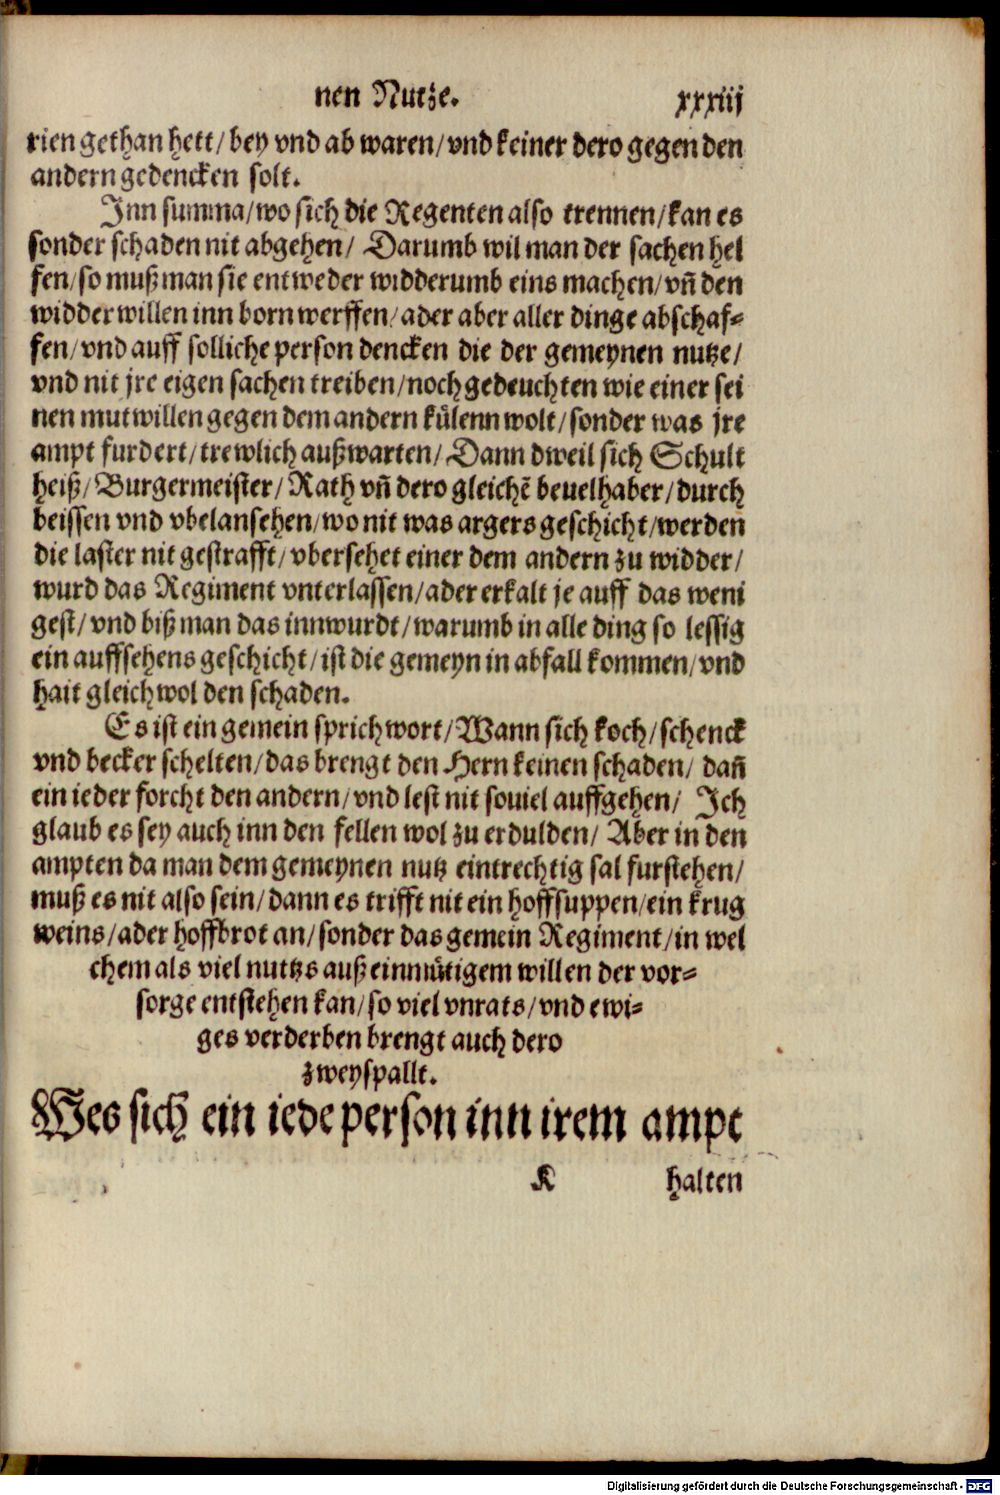 nen Nutze.
xxxiij
rien gethan hett/ bey vnd ab waren/ vnd keiner dero gegen den
andern gedencken solt.
Inn summa/ wo sich die Regenten also trennen/ kan es
sonder schaden nit abgehen/ Darumb wil man der sachen hel
fen/ so muß man sie entweder widderumb eins machen/ vñ den
widderwillen inn born werffen/ ader aber aller dinge abschaf⸗
fen/ vnd auff solliche person dencken die der gemeynen nutze/
vnd nit jre eigen sachen treiben/ noch gedeuchten wie einer sei
nen mutwillen gegen dem andern kůlenn wolt/ sonder was jre
ampt furdert/ trewlich außwarten/ Dann dweil sich Schult
heiß/ Burgermeister/ Rath vñ dero gleichẽ beuelhaber/ durch
beissen vnd vbelansehen/ wo nit was argers geschicht/ werden
die laster nit gestrafft/ vbersehet einer dem andern zu widder/
wurd das Regiment vnterlassen/ ader erkalt je auff das weni
gest/ vnd biß man das innwurdt/ warumb in alle ding so lessig
ein auffsehens geschicht/ ist die gemeyn in abfall kommen/ vnd
hait gleichwol den schaden.
Es ist ein gemein sprichwort/ Wann sich koch/ schenck
vnd becker schelten/ das brengt den Hern keinen schaden/ dañ
ein ieder forcht den andern/ vnd lest nit souiel auffgehen/ Ich
glaub es sey auch inn den fellen wol zu erdulden/ Aber in den
ampten da man dem gemeynen nutz eintrechtig sal furstehen/
muß es nit also sein/ dann es trifft nit ein hoffsuppen/ ein krug
weins/ ader hoffbrot an/ sonder das gemein Regiment/ in wel
chem als viel nutzs auß einmůtigem willen der vor⸗
sorge entstehen kan/ so viel vnrats/ vnd ewi⸗
ges verderben brengt auch dero
zweyspallt.
Wes sich ein iede person inn irem ampt
K
halten
Digitalisierung gefördert durch die Deutsche Forschungsgemeinschaft - DFG